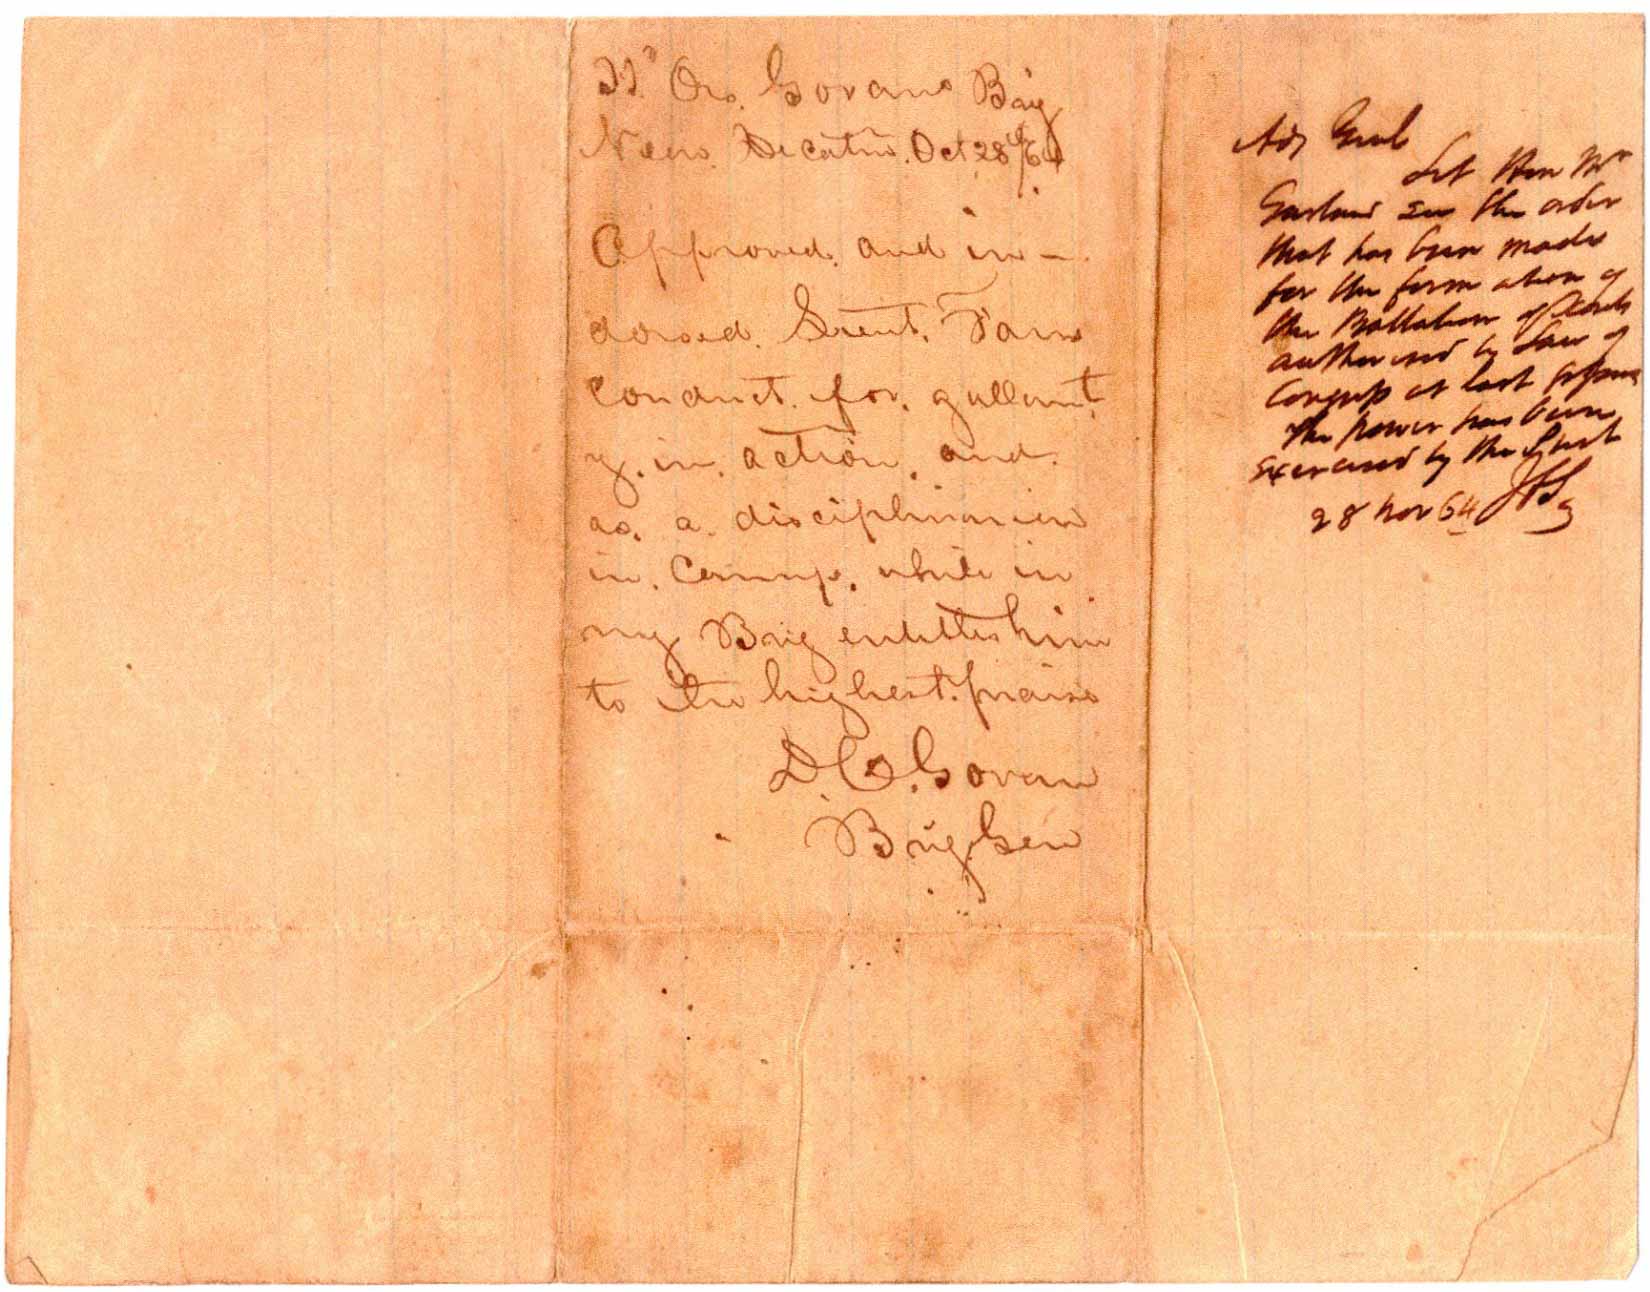 Hd Qrs. Govans Brig
Near Decatur. Oct 28th/64
Approved. and in-
dorsed. Lieut.
conduct. for. gallant
ry. in. action. and.
as. a. disciplinarian
in. Camp. while in
my Brig entitles him
to the highest. praise
D. C. Govan
Brig. Gen
Adj Genl
Let Hon Mr
Garland see the order
that has been made
for the formation of
the Battalion of Scouts
authorised by Law of
Congress at last
The power has been
exercised by the
28 Nov 64